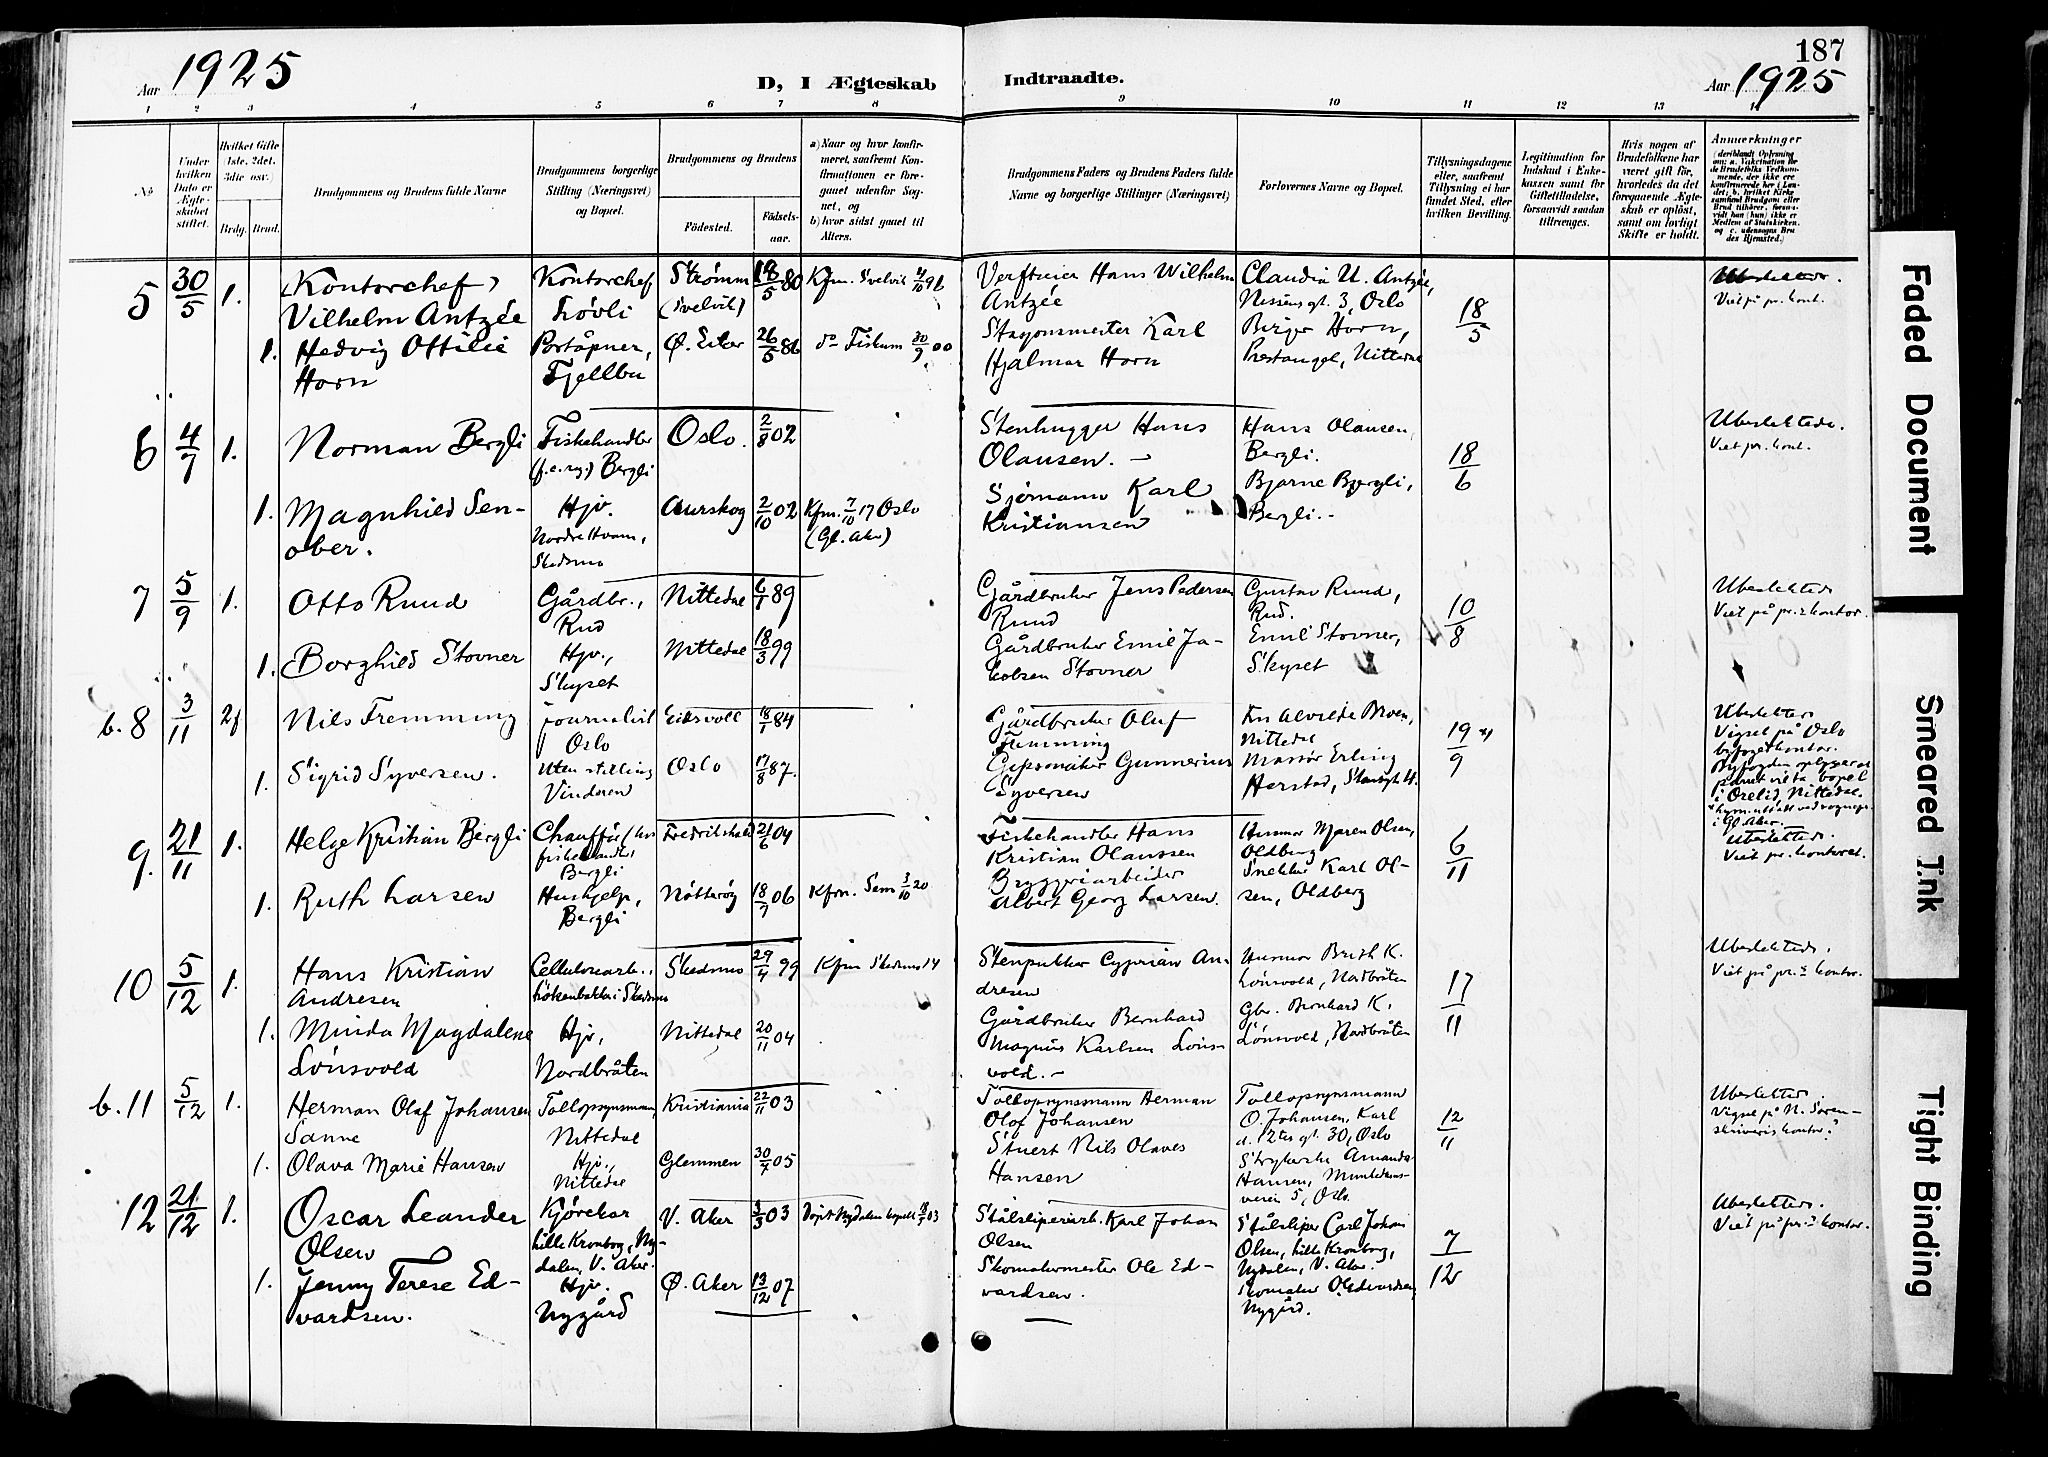 187
Aar 1925
D, I Ægteskab Indtraadte.
Aar 1925
1 2 3 4 5 6 7 8 9 10 11 12 13
No
Under hvilken Dato er Ægteskabet stiftet.
Hvilket Gifte (1ste, 2det, 3die osv.)
Brdg. Brud.
Brudgommens og Brudens fulde Navne
Brudgommens borgerlige Stilling (Næringsvei) og Bopæl.
Brudgommens og Brudens
Fødested.
Fødselsaar.
a) Naar og hvor konfirmeret, saafremt Konfirmationen er foregaaet udenfor Sognet, og
b) hvor sidst gaaet til Alters.
Brudgommens Faders og Brudens Faders fulde Navne og borgerlige Stillinger (Næringsvei)
Forlovernes Navne og Bopæl.
Tillysningsdagene eller, saafremt Tillysning ei har fundet Sted, efter hvilken Bevilling.
Legitimation for Indskud i Enkekassen samt for Giftetilladelse, forsaavidt saadan tiltrænges.
Hvis nogen af Brudefolkene har været gift før, hvorledes da det foregaaende Ægteskab er opløst, samt om lovligt Skifte er holdt.
Anmærkninger
5 30/5 1. Kontorchef Vilhelm Antzée
Kontorchef Løvli
Strømm (Svelvik) 18/5 80
Kfm. Svelvik 4/10 96
Verfteier Hans Wilhelm Antzée
Claudia U. Antzée, Nessens gt. 3, Oslo
18/5
Viet på pr. kont.
1. Hedvig Ottilie Horn
Portåpner, Fjellbu
Ø. Eiker 26/5 86
do Fiskum 30/9 00
Stasjonsmester Karl Hjalmar Horn
Birger Horn, Prestangel, Nittedal
6 4/7 1. Norman Bergli
Fiskehandler Bergli
Oslo. 2/8 02
Stenhugger Hans Olausen. -
Hans Olausen, Bergli.
18/6
Ubeslektede.
Viet pr. kont.
1. Magnhild Senober.
Hjv. Nordre Hvam, Skedsmo
Aurskog 2/10 02
Kfm. 7/10 17 Oslo (Gl. Aker)
Sjömann Karl Kristiansen
Bjarne Bergli, Bergli. -
7 5/9 1. Otto Ruud
Gårdbr., Rud
Nittedal 6/1 89
Gårdbruker Jens Pedersen Ruud
Gustav Ruud, Rud.
10/8
Ubeslektede
Viet på pr.s kontor.
1. Borghild Stovner
Hjv., Skyset
Nittedal 18/3 99
Gårdbruker Emil Jakobsen Stovner
Emil Stovner, Skyset
b. 8 3/11 2f Nils Fremming
journalist Oslo
Eidsvoll 18/1 84
Gårdbruker Oluf Fremming
Fru Alvilde Broen, Nittedal
19/9
Ubeslektede
Vigsel på Oslo byfogetkontor.
i Gl. Aker.
1. Sigrid Syversen.
Uten stilling Vinderen
Oslo 17/8 87.
Gipsmaker Gunnerius Syversen
Massør Erling Herstad,
9. 21/11 1. Helge Kristian Bergli
Chauffør fiskehandler Bergli
Fredrikshald 21/6 04
Fiskehandler Hans Kristian Olaussen
Husmor Maren Olsen, Oldberg
6/11
Ubeslektede.
Viet pr. kontoret.
1. Ruth Larsen
Hushjelp, Bergli
Nötterög 18/9 06
Kfm. Sem 3/10 20
Bryggeriarbeider Albert Georg Larsen.
Snekker Karl Olsen, Oldberg
10 5/12 1. Hans Kristian Andresen
Cellulosearb., Løkenbakken i Skedsmo
Skedsmo 29/4 99
Kfm Skedsmo 14
Stenpukker Cyprian Andresen
Husmor Brith K. Lønsvold, Nordbråten
17/11
Ubeslektede.
Viet på pr.s kontor.
1. Minda Magdalene Lönsvold
Hjv, Nordbråten
Nittedal 20/11 04
Gårdbruker Bernhard Magnus Karlsen Lönsvold. -
Gbr. Bernhard K. Lönsvold, Nordbråten
b. 11 5/12 1. Herman Olaf Johansen Sanne
Tollopsynsmann, Nittedal
Kristiania 22/11 03
Tollopsynsmann Herman Olaf Johansen
Tollopsynsmann O. Johansen, Karl d. 12tes gt. 30, Oslo
12/11
Ubeslektede.
Vigsel på N. Sorenskriveris kontor.
1. Olava Marie Hansen
Hjv., Nittedal
Glemmen 30/4 05
Stuert Nils Olaves Hansen
Strykerske Amanda Hansen, Munkedamsveien 5, Oslo.
12 21/12 1. Oscar Leander Olsen
Kjörekar lille Kronborg, Nydalen, V. Aker.
V. Aker 3/3 03
Döpt Nydalen kapell
Stålsliperarb. Karl Johan Olsen
Stålsliper Carl Johan Olsen, lille Kronborg, Nydalen, V. Aker.
7/12
Ubeslektede.
Viet på pr.s kontor.
1. Jenny Terese Edvardsen.
Hjv. Nygård
Ø. Aker 13/12 07
Skomakermester Ole Edvardsen.
Skomaker O. Edvardsen, Nygård.
Faded Document
Smeared Ink
Tight Binding